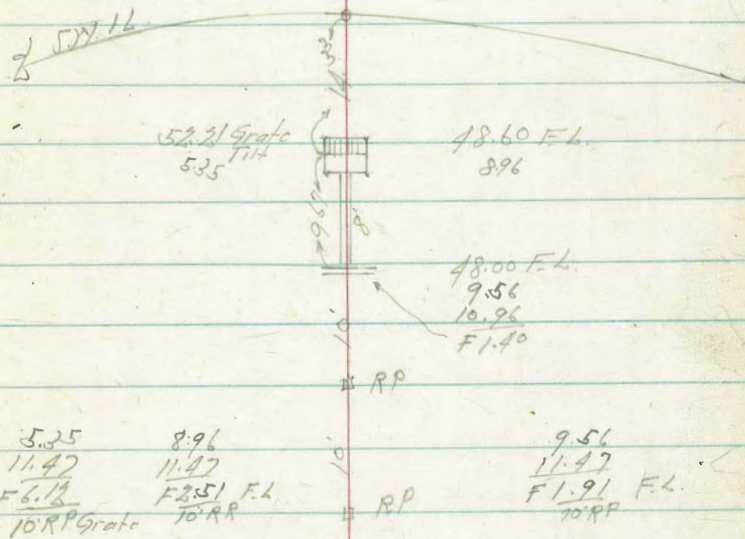 52.21 Grate
Tilt
5.35
48.60 F.L.
8.96
8'
48.00 F.L.
9.56
10.96
F 1.40
10'
RP
10'
RP
5.35
11.47
F 6.12
10' RP Grate
8.96
11.47
F 2.51 F.L
10' RP
9.56
11.47
F 1.91 F.L
10' RP